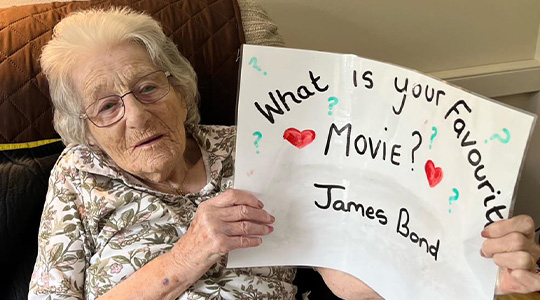 What is your Favourite
Movie?
James Bond